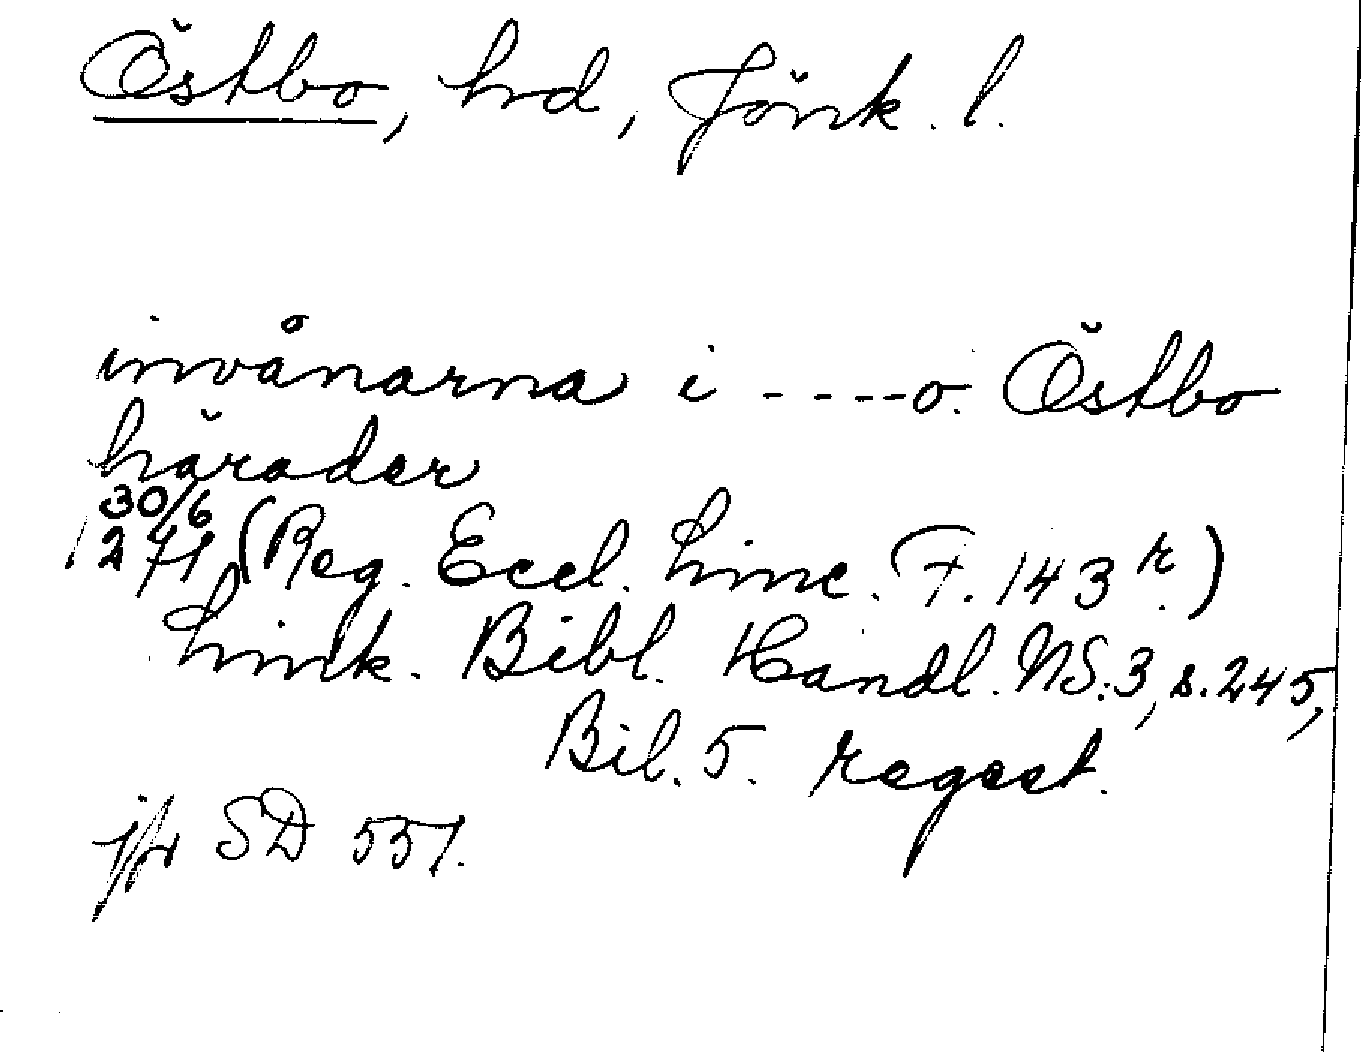 Östbo, hd, Jönk. l.
invånarna i ----o. Östbo
härader
30/6
1271 (Reg. Eccl. Linc. F. 143 r.)
Link. Bibl. Handl. NS. 3, s. 245,
Bil. 5. regest.
jfr SD 551.